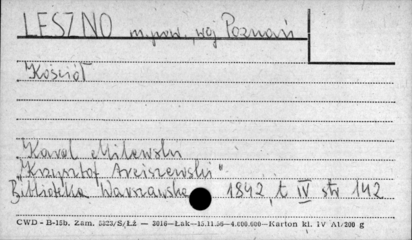 LESZNO m. pow., woj Poznań
Kościół
Karol Milewski
"Krzysztof Arciszewski"
Biblioteka Warszawska 1842, t IV str 142
CWD - B-15b. Zam. 5323/S/ŁZ — 3016—Łak—15.11.56—4.000.000—Karton kl. IV A1/200 g